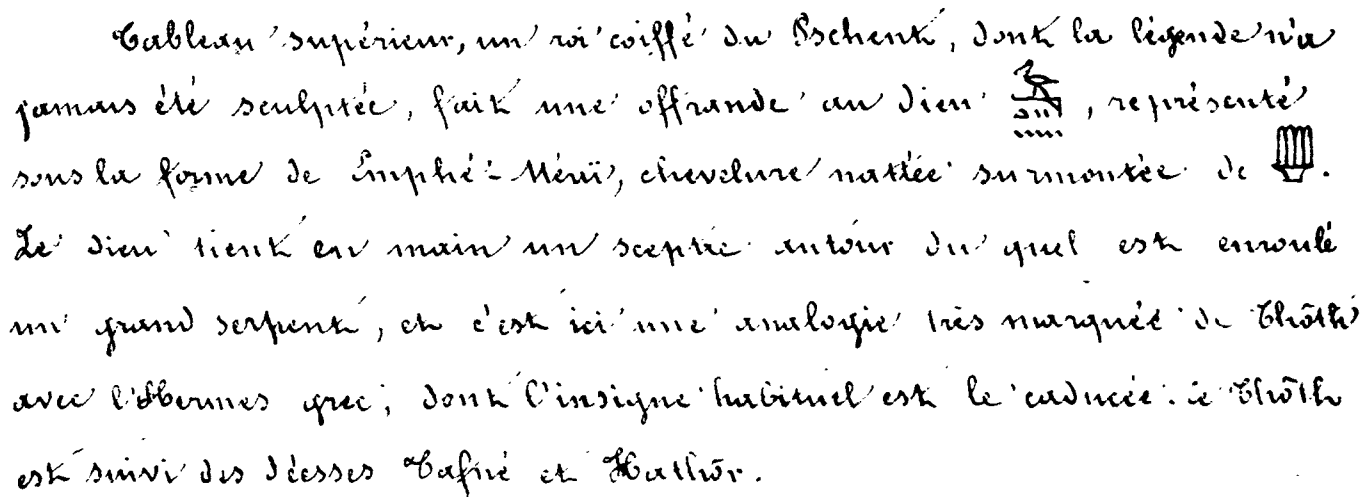 Tableau supérieur, un roi coiffé du Pschent, dont la légende n'a
jamais été sculptée, fait une offrande au dieu , représenté
sous la forme de Emphé-Méuï, chevelure nattée surmontée de .
Le dieu tient en main un sceptre autour du quel est enroulé
un grand serpent, et c'est ici une analogie très marquée de Thôth
avec l'Hermes grec, dont l'insigne habituel est le caducée. Ce Thôth
est suivi des déesses Tafné et Hathôr.